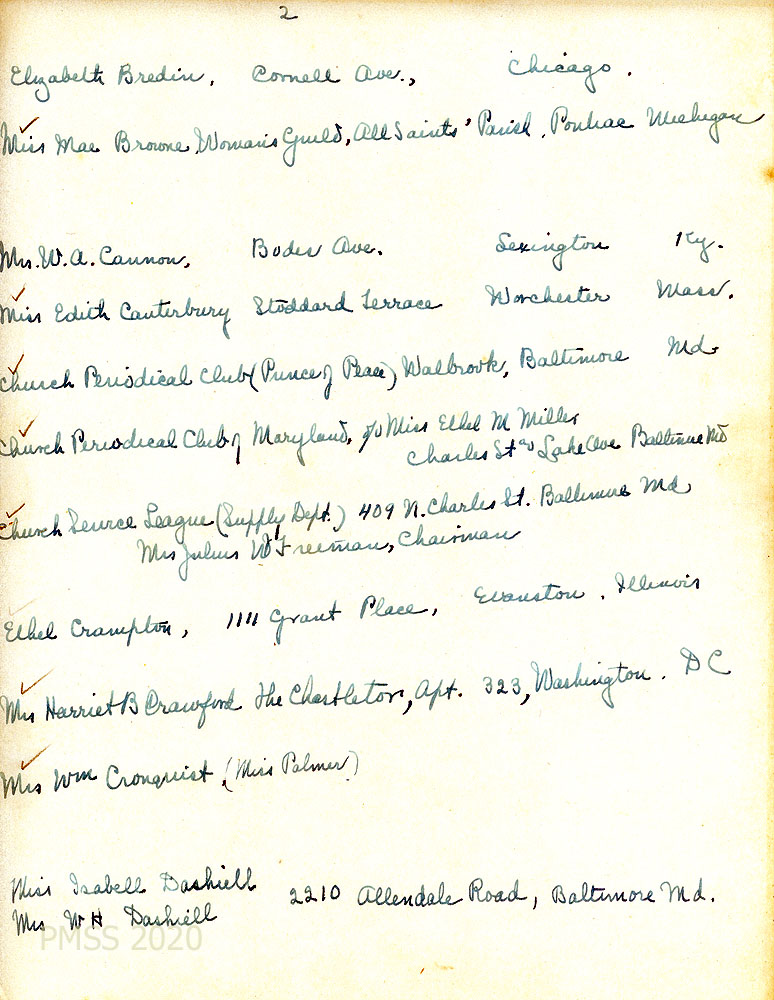 2
Elizabeth Bredin, Cornell Ave., Chicago.
Miss Mae Browne, Woman's Guild, All Saints' Parish, Pontiac Michegan
Mrs. W. A. Cannon, Ave. Lexington Ky.
Miss Edith Canterbury Stoddard Terrace Worchester Mass.
Church Periodical Club (Prince of Peace) Walbrook, Baltimore Md
Church Periodical Club of Maryland, c/o Miss Ethel M Miller
Charles St and Lake Ave Baltimore Md
Church Service League (Supply Dept.) 409 N. Charles St. Baltimore Md
Mrs Julius W Freeman, Chairman
Ethel Crampton, 1111 Grant Place, Evanston, Illinois
Mrs Harriet B Crawford The Chastleton, Apt. 323, Washington. DC
Mrs Wm Cronquist (Miss Palmer)
Miss Isabell Dashiell
Mrs W H Dashiell 2210 Allendale Road, Baltimore Md.
PMSS 2020